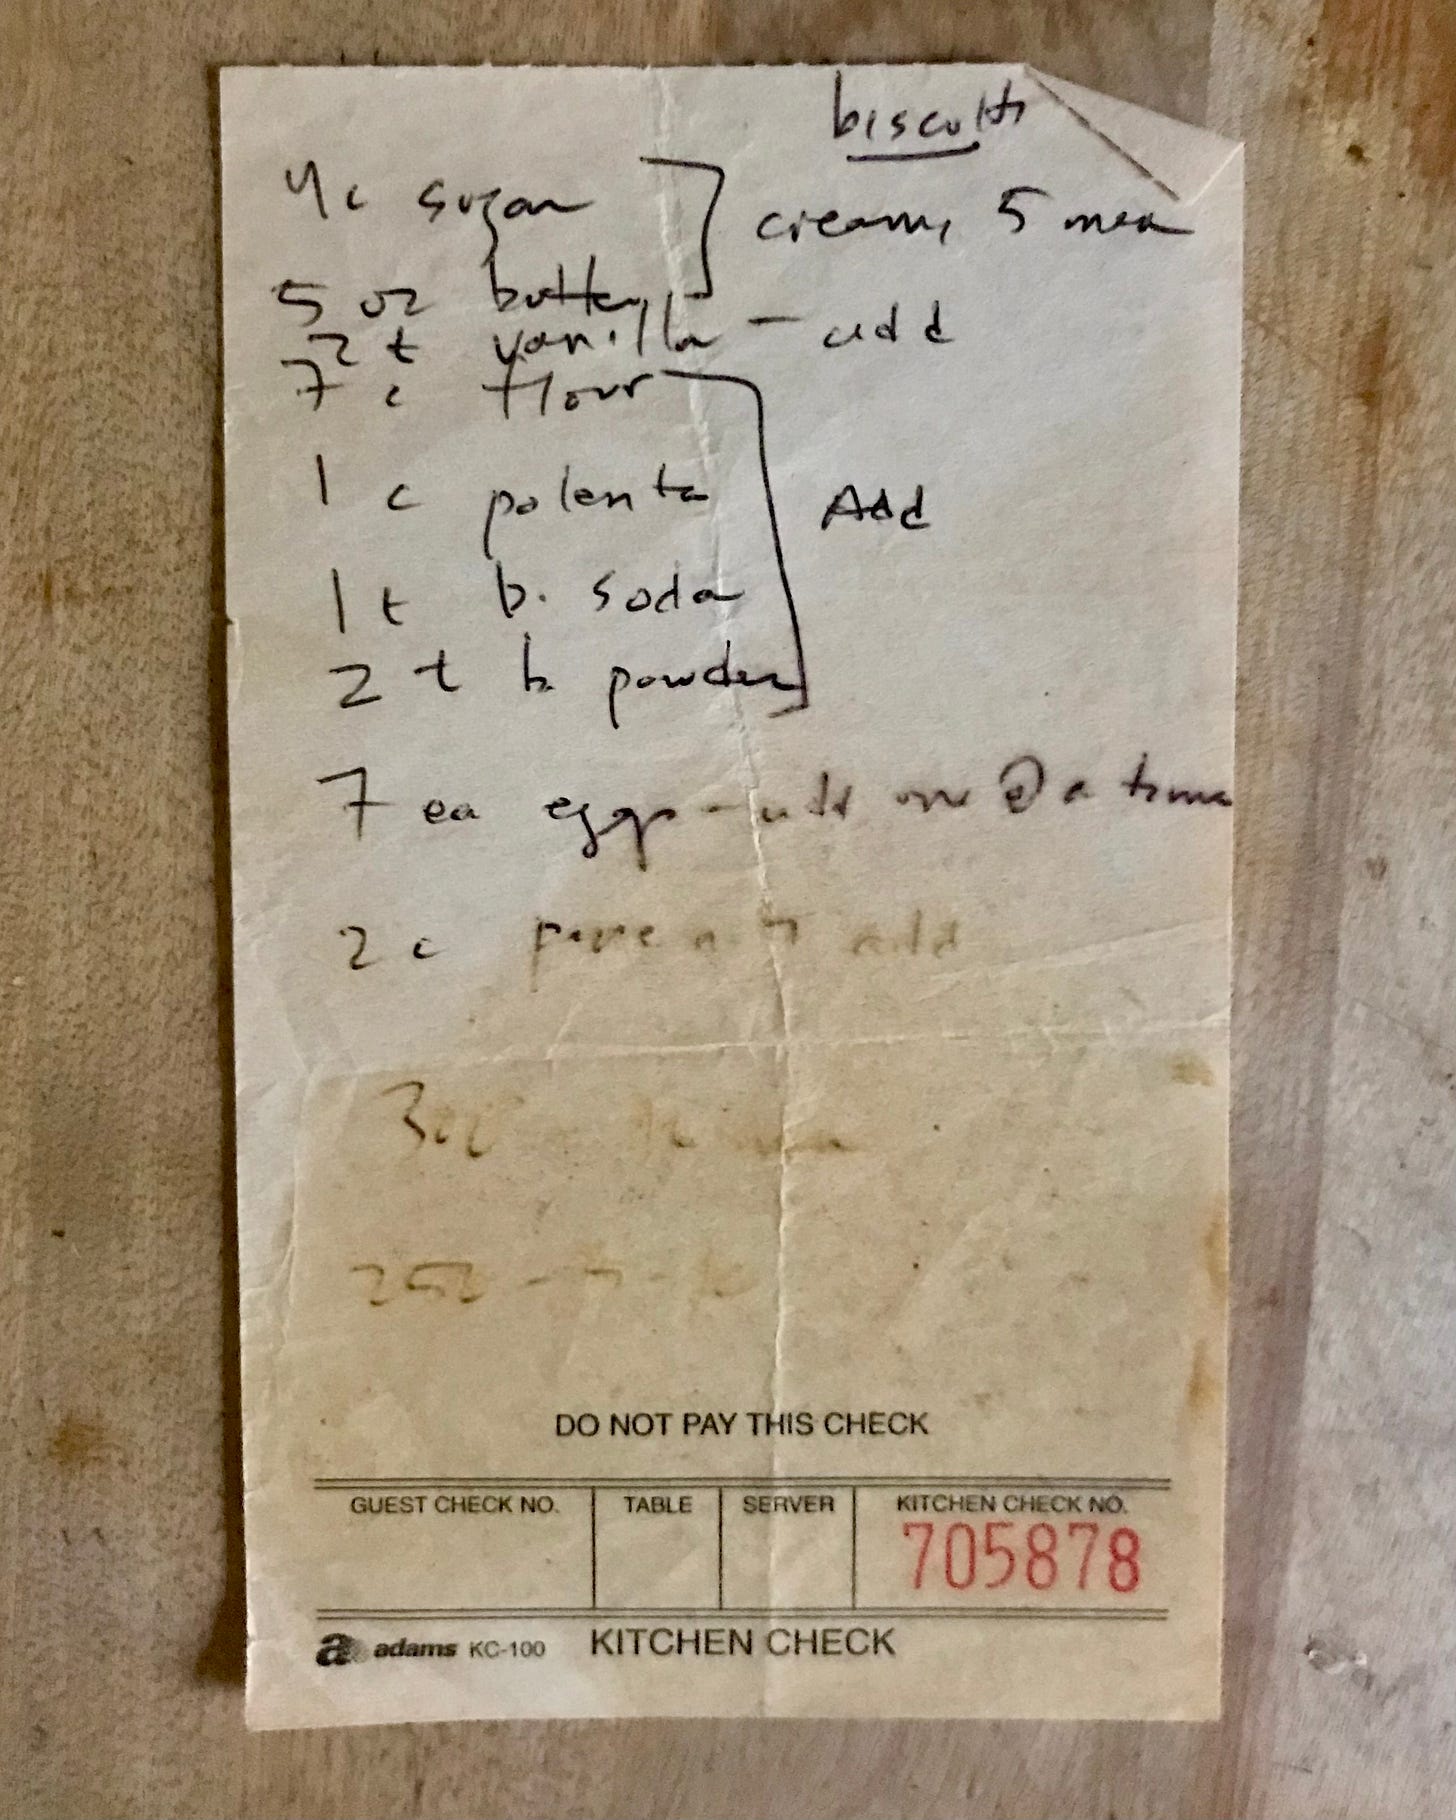 biscotti
4c sugar
creamy 5 min
5 oz butter
2 t vanilla - add
7 c flour
1 c polenta
Add
1 t b. soda
2 t b powder
7 ea eggs - add one @ a time
2 c pine nuts add
300
DO NOT PAY THIS CHECK
GUEST CHECK NO. TABLE SERVER KITCHEN CHECK NO.
705878
a adams KC-100 KITCHEN CHECK